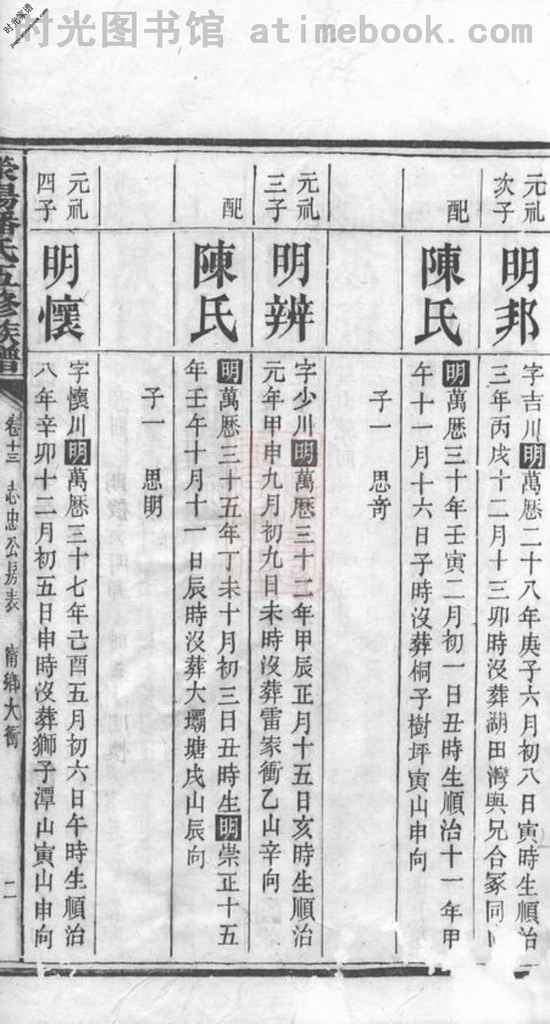 时光图书馆 atimebook.com
时光家谱
元礼
次子
明邦
字吉川明萬厯二十八年庚子六月初八日寅時生順治
三年丙戌十二月十三卯時沒葬湖田灣與兄合冢同
配
陳氏
明萬厯三十年壬寅二月初一日丑時生順治十一年甲
午十一月十六日子時沒葬桐子樹坪寅山申向
子一 思竒
元礼
三子
明辨
字少川明萬厯三十二年甲辰正月十五日亥時生順治
元年甲申九月初九日未時沒葬雷家衝乙山辛向
配
陳氏
明萬厯三十五年丁未十月初三日丑時生明崇正十五
年壬午十月十一日辰時沒葬大壩塘戌山辰向
子一 思明
元礼
四子
明懷
字懷川明萬厯三十七年己酉五月初六日午時生順治
八年辛卯十二月初五日申時沒葬獅子潭山寅山申向
滎陽潘氏五修族譜
卷十三 志忠公房表 甯鄉大衝
二